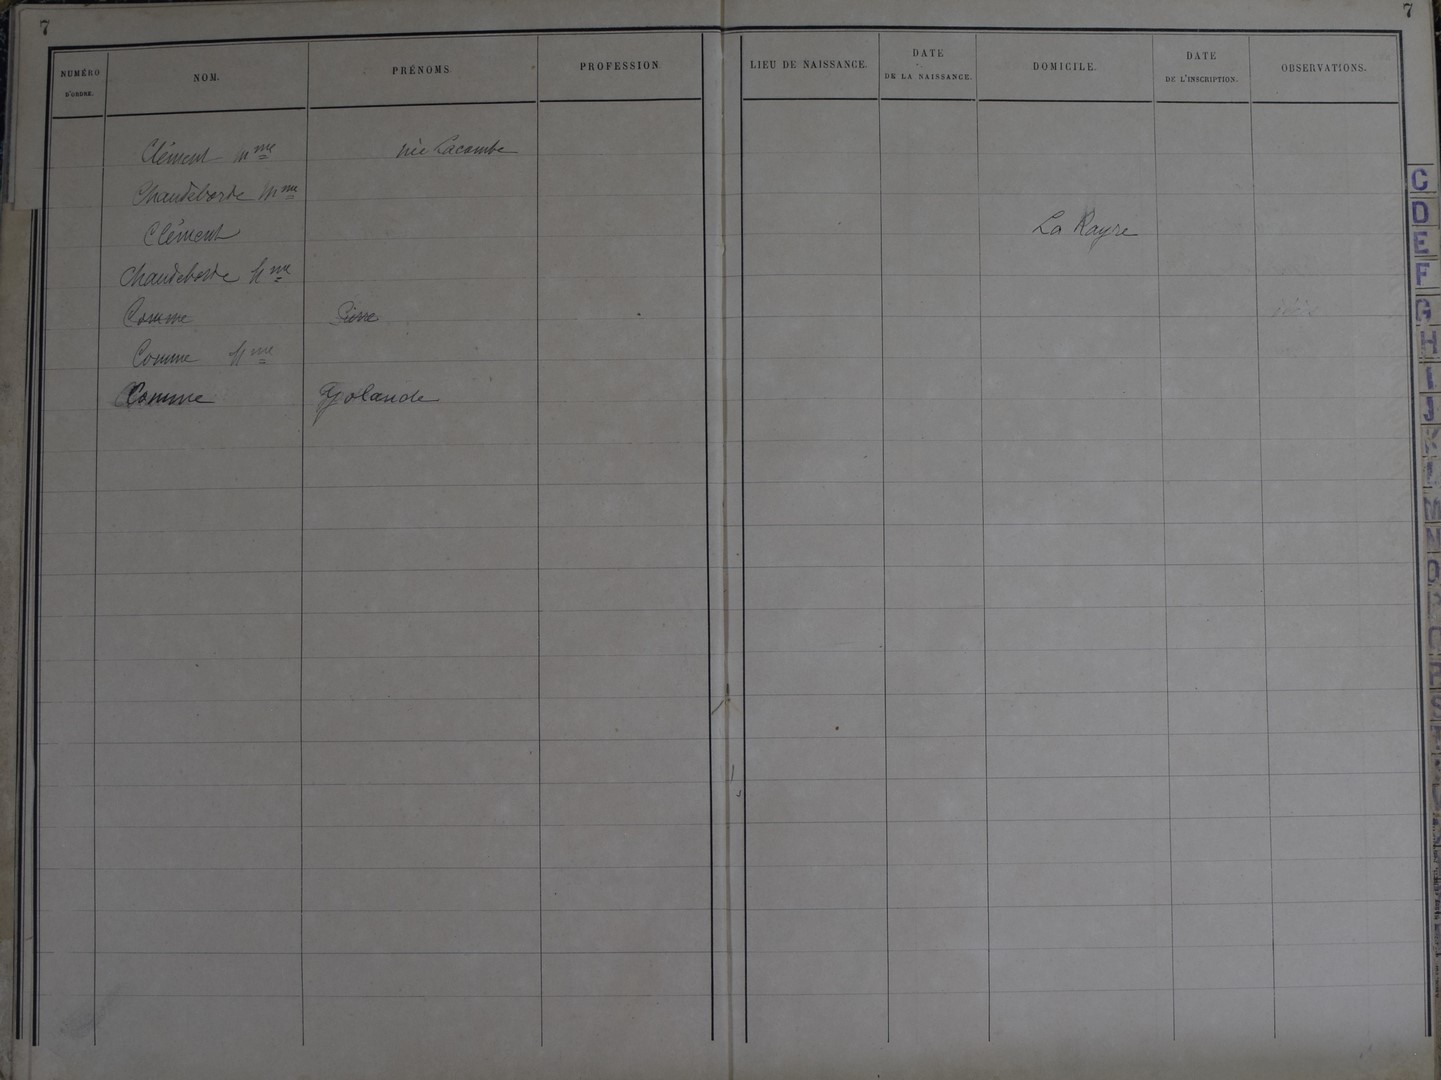 7 7
NUMÉRO D'ORDRE. NOM. PRÉNOMS PROFESSION LIEU DE NAISSANCE. DATE DE LA NAISSANCE. DOMICILE. DATE DE L'INSCRIPTION. OBSERVATIONS.
Clément Mme née Lacombe
Chandeborde Mme
Clément La Rayre
Chandeborde Mme
Comme Pierre
Comme Mme
Comme Yolande
C
D
E
F
G
H
I
J
K
L
M
N
O